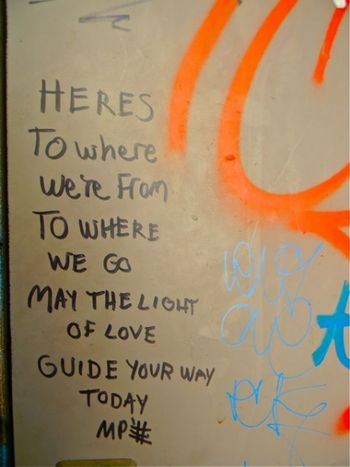 HERES
To where
We're From
TO WHERE
WE GO
MAY THE LIGHT
OF LOVE
GUIDE YOUR WAY
TODAY
MP#